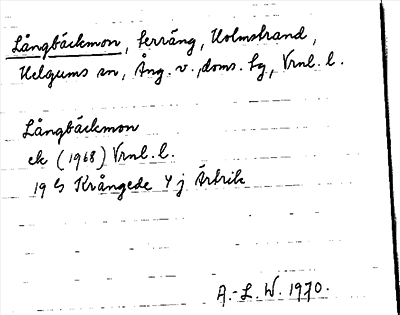 Långbäckmon, terräng, Holmstrand,
Helgums sn, Ång. v., doms. sg, Vrnl. l.
Långbäckmon
ek (1968) Vrnl. l.
19 G Krångede 4 j Ärtrik
A.-L. W. 1970.